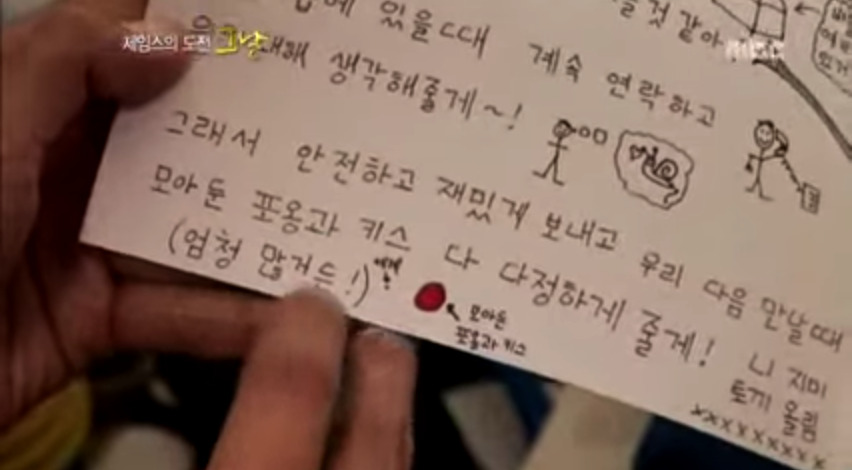 제임스의 도전 그날
MBC
있을때 계속 연락하고
대해 생각해줄게~!
그래서 안전하고 재밌게 보내고 우리 다음 만날때
모아둔 포옹과 키스 다 다정하게 줄게!
(엄청 많거든!)
모아둔
포옹과 키스
니 지미
토끼 올림
xxxxxxxxx